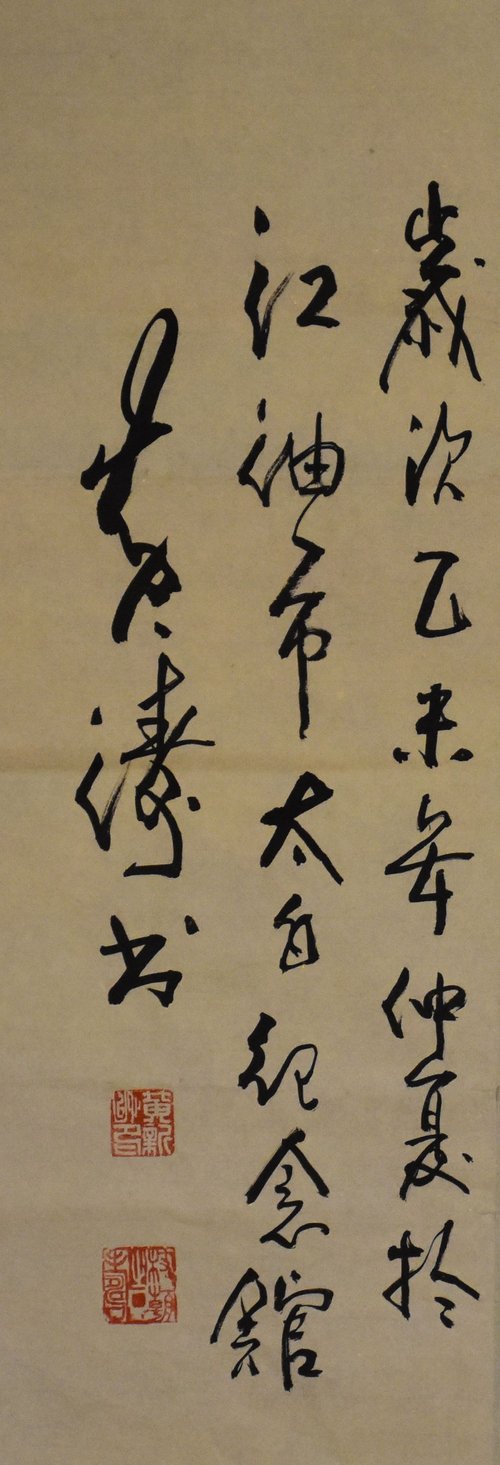 歲次乙未年仲夏於
江油市太白紀念館
黃濤書